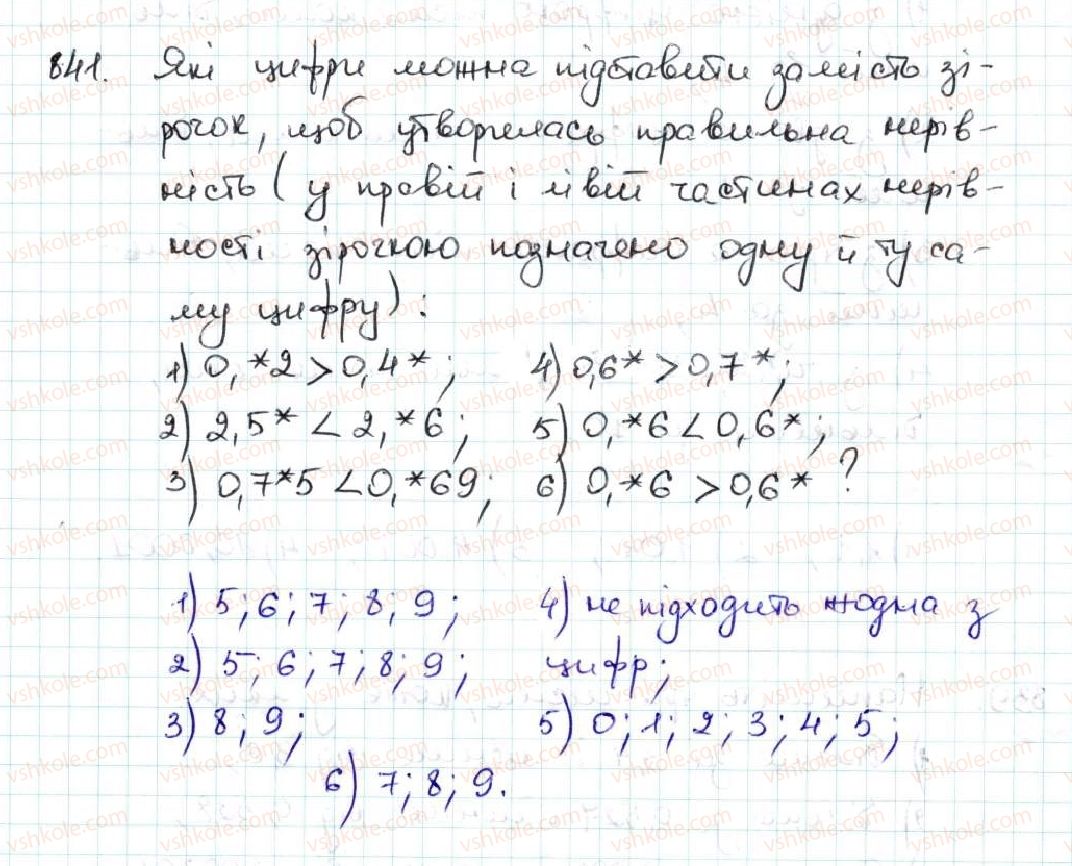 841. Які цифри можна підставити замість зі-
рочок, щоб утворилась правильна нерів-
ність (у правій і лівій частинах нерів-
ності зірочкою позначено одну й ту са-
му цифру):
1) 0,*2 > 0,4*; 4) 0,6* > 0,7*;
2) 2,5* < 2,*6; 5) 0,*6 < 0,6*;
3) 0,7*5 < 0,*69; 6) 0,*6 > 0,6* ?
1) 5; 6; 7; 8; 9; 4) не підходить жодна з
2) 5; 6; 7; 8; 9; цифр;
3) 8; 9; 5) 0; 1; 2; 3; 4; 5;
6) 7; 8; 9.